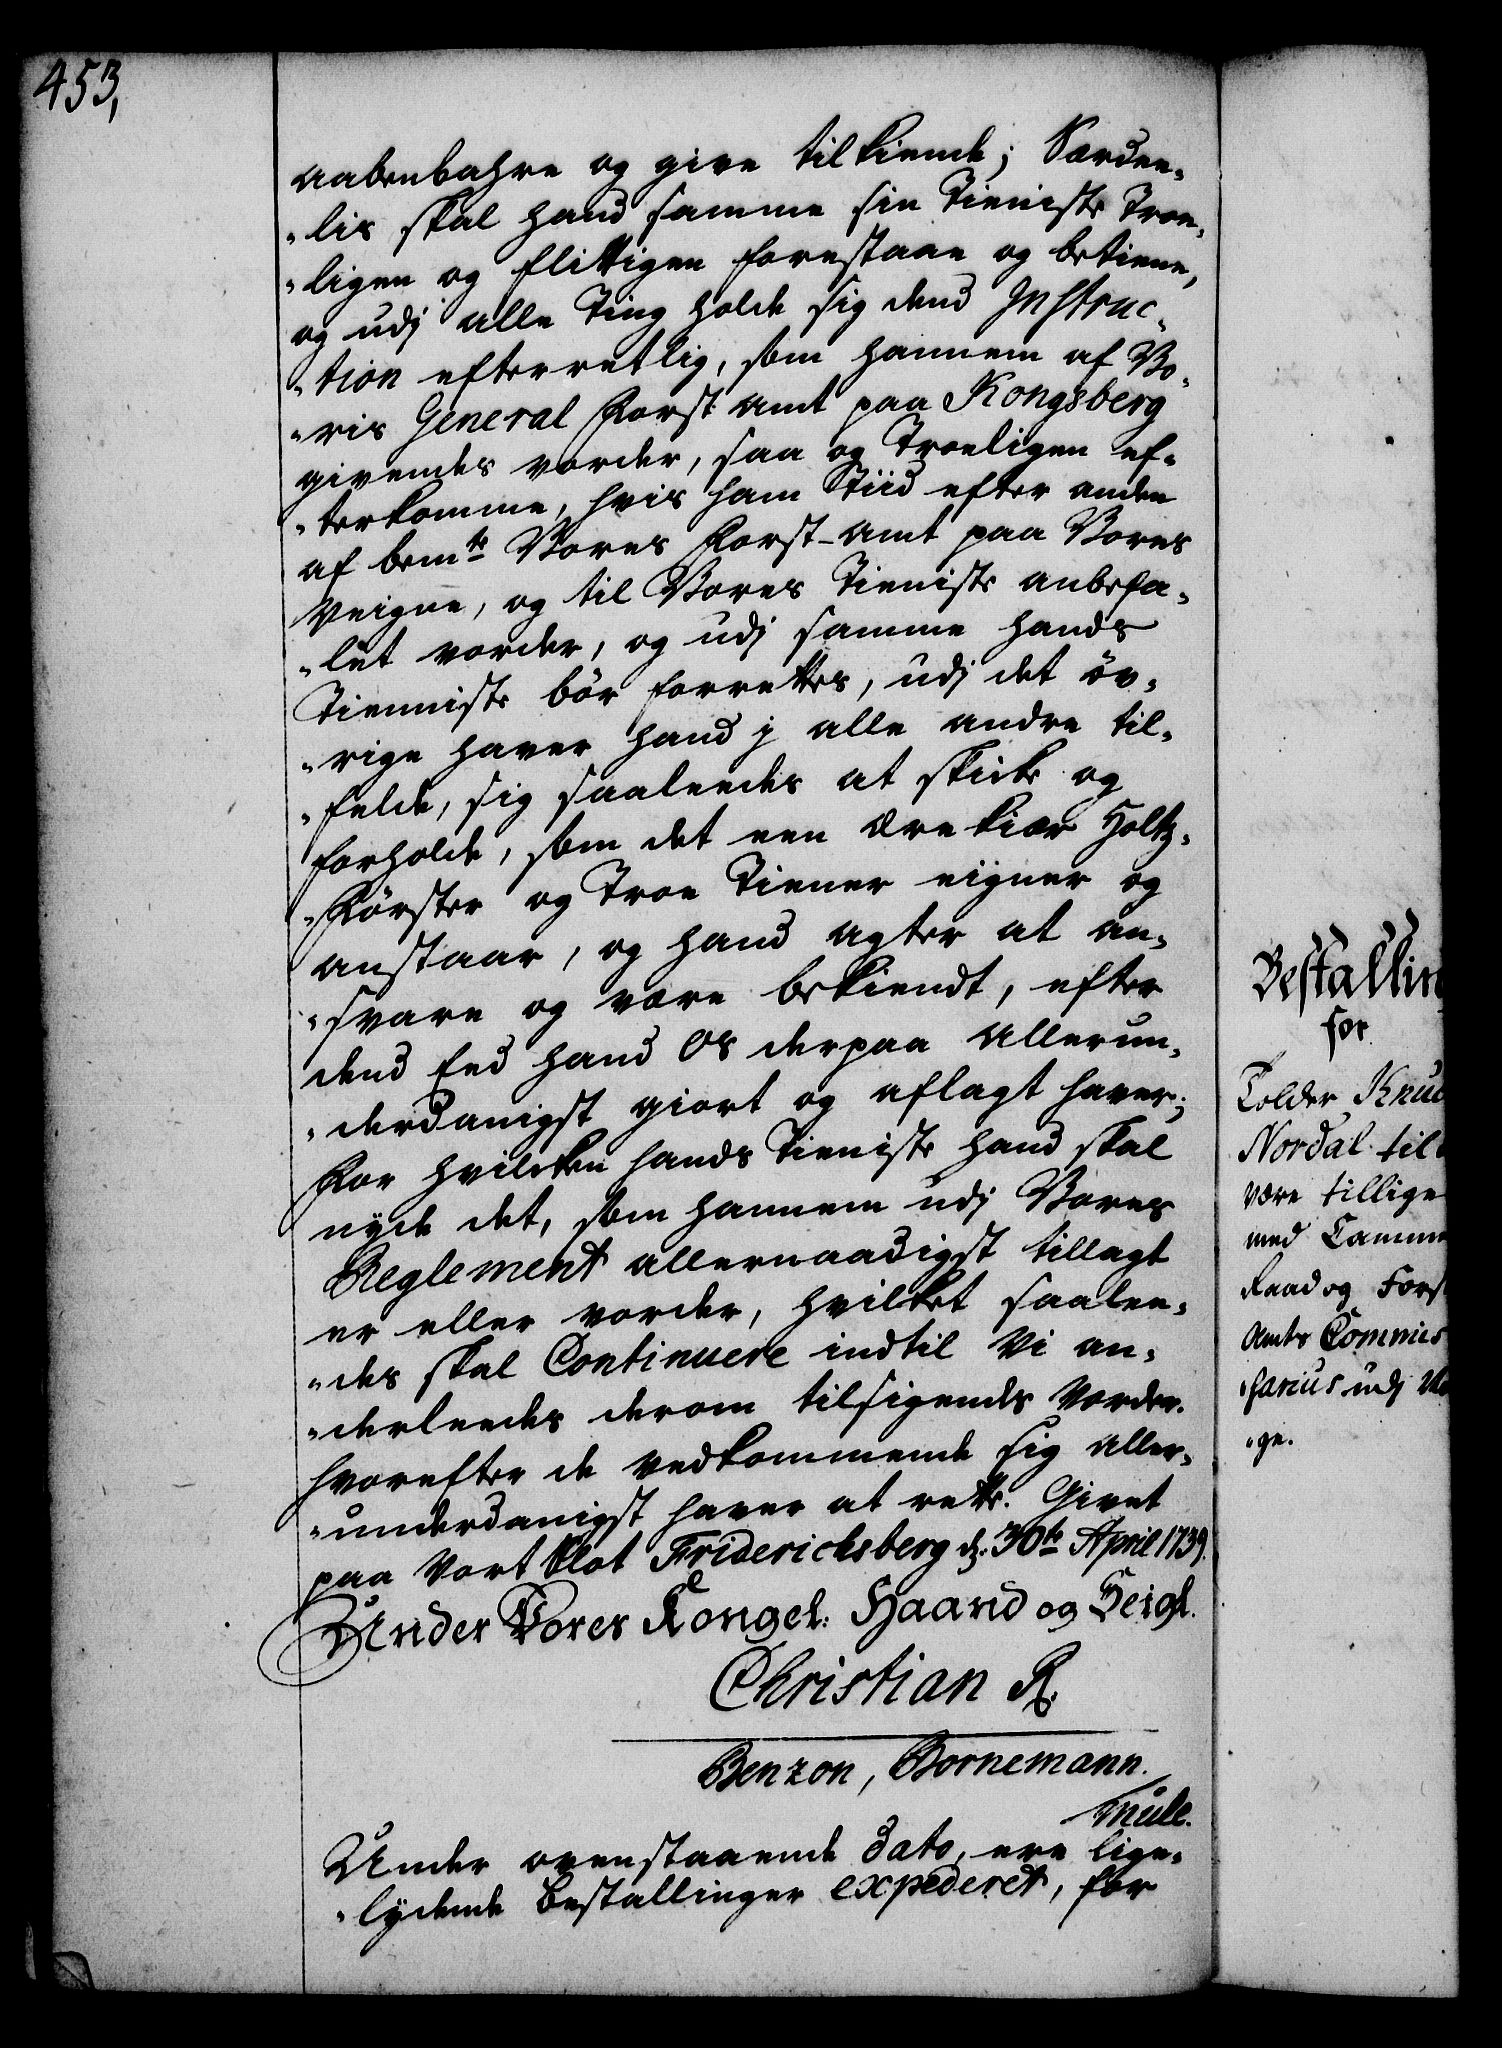 453,
aabenbahre og give tilkiende; Særdee-
-lis skal hand samme sin Tieniste Troe-
-ligen og flittigen forestaae og betiene,
og udj alle Ting holde sig dend Instruc-
-tion efterretlig, som hannem af Vo-
-ris General Forst amt paa Kongsberg
givendes vorder, saa og Troeligen ef-
-terkomme, hvis ham Tiid efter anden
af bemte Vores Forst-amt paa Vores
Veigne, og til Vores Tieniste anbefa-
-let vorder, og udj samme hands
Tienniste bör forrettes, udj det öv-
-rige haver hand j alle andre til-
-felde, sig saaleedes at skicke og
forholde, som det een Ærekiær Holtz-
-Förster og Troe Tiener eigner og
anstaar, og hand agter at an-
-svare og være bekiendt, efter
dend Eed hand Os derpaa allerun-
-derdanigst giort og aflagt haver;
For hvilcken hands Tieniste hand skal
nyde det, som hannem udj Vores
Reglement allernaadigst tillagt
er eller vorder, hvilket saalee-
-des skal Continuere indtil Vi an-
-derleedes derom tilsigendes vorder.
hvorefter de vedkommende sig aller-
-underdanigst haver at rette. Givet
paa Vort Slot Friderichsberg d: 30te April 1739.
Under Vores Kongel: Haand og Seigl.
Christian R.
Benzon, Bornemann.
Mule.
Under ovenstaaende Dato, ere lige-
-lydende Bestallinger expederet, for
Bestallin
for
Tolder Knud
Nordal til
være tillige
med Camme
Raad og Forst
Amts Commis
-sarius udj
-ge.